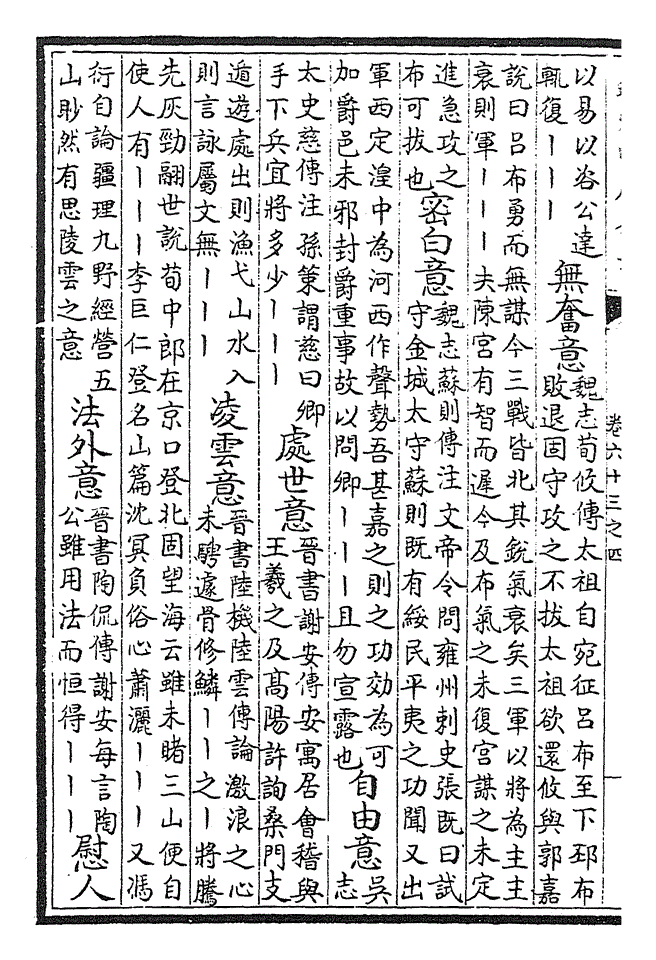 卷六十三之四
一
以易以咨公達
輒復丨丨丨
無奮意
魏志荀攸傳太祖自宛征呂布至下邳布
敗退固守攻之不拔太祖欲還攸與郭嘉
說曰呂布勇而無謀今三戰皆北其銳氣衰矣三軍以將為主主
衰則軍丨丨丨夫陳宮有智而遲今及布氣之未復宮謀之未定
進急攻之
布可拔也
密白意
魏志蘇則傳注文帝令問雍州刺史張既曰試
守金城太守蘇則既有綏民平夷之功聞又出
軍西定湟中為河西作聲勢吾甚嘉之則之功効為可
加爵邑未邪封爵重事故以問卿丨丨丨且勿宣露也
自由意
吳
志
太史慈傳注孫策謂慈曰卿
手下兵宜將多少丨丨丨
處世意
晉書謝安傳安寓居會稽與
王羲之及高陽許詢桑門支
遁遊處出則漁弋山水入
則言詠屬文無丨丨丨
凌雲意
晉書陸機陸雲傳論激浪之心
未騁遽骨修鱗丨丨之丨將騰
先灰勁翮世說荀中郎在京口登北固望海云雖未睹三山便自
使人有丨丨丨李巨仁登名山篇沈冥負俗心蕭灑丨丨丨又馮
衍自論疆理九野經營五
山眇然有思陵雲之意
法外意
晉書陶侃傳謝安每言陶
公雖用法而恒得丨丨丨
慰人